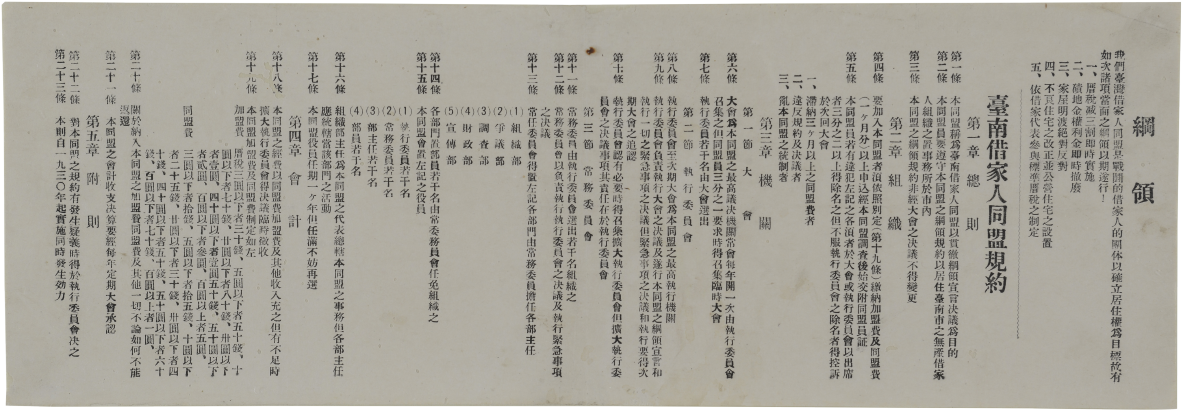 綱領
我們臺灣借家人同盟是戰鬪的借家人的團体以確立居住權為目標故有
如次諸項當面之綱領以期遂行！
一、厝稅三割即時實施
二、磧地金權利金即時撤廢
三、家屋明渡絕對反對
四、不良住宅之改正並公營住宅之設置
五、依借家代表參與標準厝稅之制定
臺南借家人同盟規約
第一章 總則
第一條 本同盟稱為臺南借家人同盟以貫徹綱領宣言決議為目的
第二條 本同盟員要遵守本同盟之綱領規約以居住臺南市之無產借家
人組織之置事務所於市內
第三條 本同盟之綱領規約非經大會之決議不得變更
第二章 組織
第四條 要加入本同盟者須依照別定(第十九條)繳納加盟費及同盟費
(一ヶ月分)以上申込經本同盟調查後給交附同盟員証
第五條 本同盟員若有違犯左記之各項者於大會或執行委員會以出席
者三分之二以上得除名之但不服執行委員會之除名者得控訴
於次回大會
一、滯納三ヶ月以上之同盟費者
二、違反規約及決議者
三、亂本同盟之統制者
第三章 機關
第一節 大會
第六條 大會為本同盟之最高議決機關常會每年開一次由執行委員會
召集之但同盟員三分之一要求時得召集臨時大會
第七條 執行委員若干名由大會選出
第二節 執行委員會
第八條 執行委員會至次期大會為本同盟之最高執行機關
第九條 執行委員會負責執行大會之決議及遂行本同盟之綱領宣言和
執行一切之緊急事項之決議但緊急事項之決議和執行要得次
期大會之追認
第十條 執行委員會認有必要時得召集擴大執行委員會但擴大執行委
員會之決議事項其責任在於執行委員會
第三節 常務委員會
第十一條 常務委員由執行委員會選出若干名組織之
第十二條 常務委員會以負責執行執行委員會之決議及執行緊急事項
之決議
第十三條 常任委員會得常置左記各部門由常務委員擔任各部主任
(1) 組織部
(2) 爭議部
(3) 調查部
(4) 財政部
(5) 宣傳部
第十四條 各部門置部員若干名由常務委員會任免組織之
第十五條 本同盟會置左記之役員
(1) 執行委員若干名
(2) 常務委員若干名
(3) 部主任若干名
(4) 部員若干名
第十六條 組織部主任為本同盟之代表總轄本同盟之事務但各部主任
應統轄當該部門之活動
第十七條 本同盟役員任期一ヶ年但任滿不妨再選
第四章 會計
第十八條 本同盟之經費以同盟費加盟費及其他收入充之但有不足時
擴大執行委員會得決議臨時徵收
第十九條 本同盟加盟費及同盟費制定如左
加盟費 厝稅三圓以下者三十錢、五圓以下者五十錢、十
圓以下者七十錢、廿圓以下者八十錢、卅圓以下
者壹圓、四十圓以下者壹圓五十錢、五十圓以下
者貳圓、七十圓以下者參圓、百圓以上者五圓、
同盟費 三圓以下者拾錢、五圓以下者拾五錢、十圓以下
者二十五錢、廿圓以下者三十錢、卅圓以下者四
十錢、四十圓以下者五十錢、五十圓以下者六十
錢、百圓以下者七十錢、百圓以上者一圓、
第二十條 關於納入本同盟之加盟費同盟費及其他一切不論如何不能
返還
第二十一條 本同盟之會計收支決算要經每年定期大會承認
第五章 附則
第二十二條 對本同盟之規約有發生疑義時得於執行委員會決之
第二十三條 本則自一九三〇年起實施同時發生効力